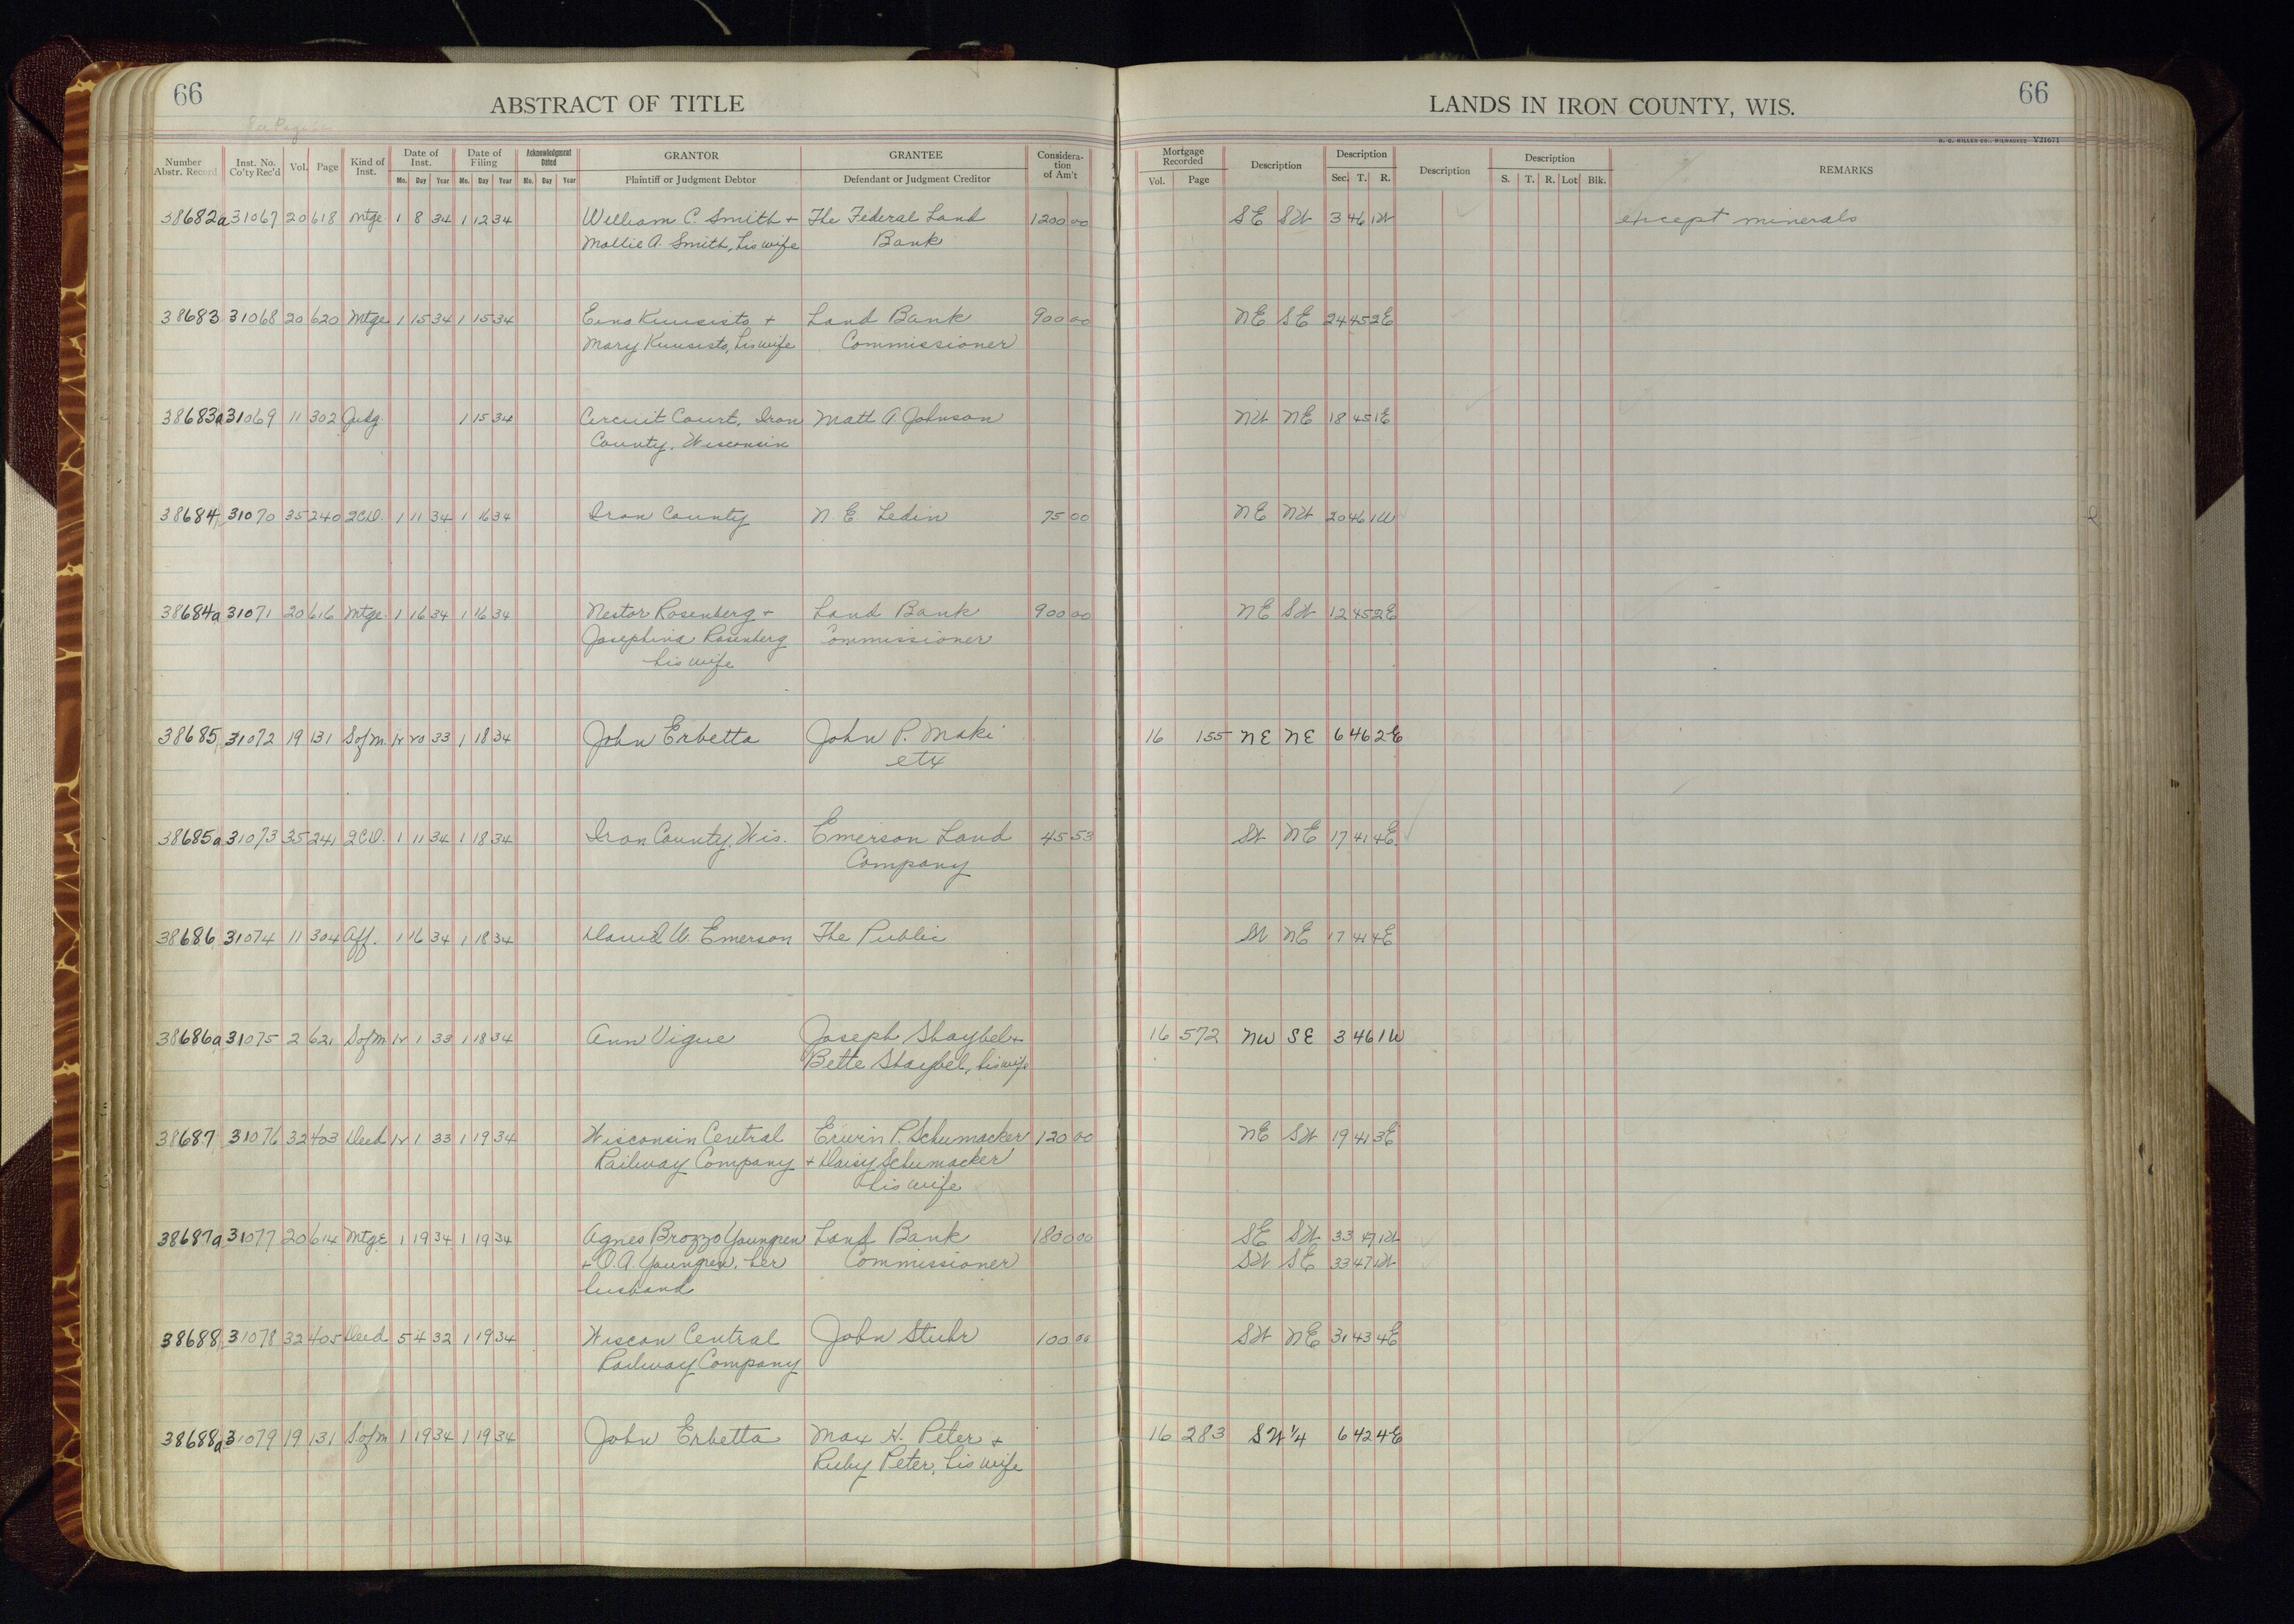 66
ABSTRACT OF TITLE
LANDS IN IRON COUNTY, WIS.
66
See Page
H. C. MILLER CO., MILWAUKEE V21671
Number Abstr. Record Inst. No. Co'ty Rec'd Vol. Page Kind of Inst. Date of Inst. Mo. Day Year Date of Filing Mo. Day Year Acknowledgment Dated Mo. Day Year GRANTOR Plaintiff or Judgment Debtor GRANTEE Defendant or Judgment Creditor Considera-tion of Am't Mortgage Recorded Vol. Page Description Description Sec. T. R. Description Description S. T. R. Lot Blk. REMARKS
38682a 31067 20 618 Mtge 1 8 34 1 12 34 William C. Smith + The Federal Land 1200 00 SE SW 3 46 1W except minerals
Mollie A. Smith, his wife Bank
38683 31068 20 620 Mtge 1 15 34 1 15 34 Eino Kuusisto + Land Bank 900 00 NE SE 24 45 2E
Mary Kuusisto, his wife Commissioner
38683a 31069 11 302 Judg. 1 15 34 Circuit Court, Iron Matt A. Johnson NW NE 18 45 1E
County, Wisconsin
38684 31070 35 240 QCD. 1 11 34 1 16 34 Iron County N. E. Ledin 75 00 NE NW 20 46 1W
38684a 31071 20 616 Mtge. 1 16 34 1 16 34 Nestor Rosenberg + Land Bank 900 00 NE SW 12 45 2E
Josephina Rosenberg Commissioner
his wife
38685 31072 19 131 S of M. 12 20 33 1 18 34 John Erbetta John P. Maki 16 155 NE NE 6 46 2E
etx
38685a 31073 35 241 QCD. 1 11 34 1 18 34 Iron County, Wis. Emerson Land 45 53 SW NE 17 41 4E
Company
38686 31074 11 304 Aff. 1 16 34 1 18 34 David W. Emerson The Public SW NE 17 41 4E
38686a 31075 2 621 S of M 12 1 33 1 18 34 Ann Vigue Joseph Shaybel + 16 572 NW SE 3 46 1W
Bette Shaybel, his wife
38687 31076 32 403 Deed 12 1 33 1 19 34 Wisconsin Central Erwin P. Schumacker 120 00 NE SW 19 41 3E
Railway Company + Daisy Schumacker
his wife
38687a 31077 20 614 Mtge 1 19 34 1 19 34 Agnes Brozzo Youngren Land Bank 1800 00 SE SW 33 47 1W
+ O. A. Youngren, her Commissioner SW SE 33 47 1W
husband
38688 31078 32 405 Deed 5 4 32 1 19 34 Wiscon Central John Stuhr 100 00 SW NE 31 43 4E
Railway Company
38688a 31079 19 131 S of M 1 19 34 1 19 34 John Erbetta Max H. Peter + 16 283 SW 1/4 6 42 4E
Ruby Peter, his wife